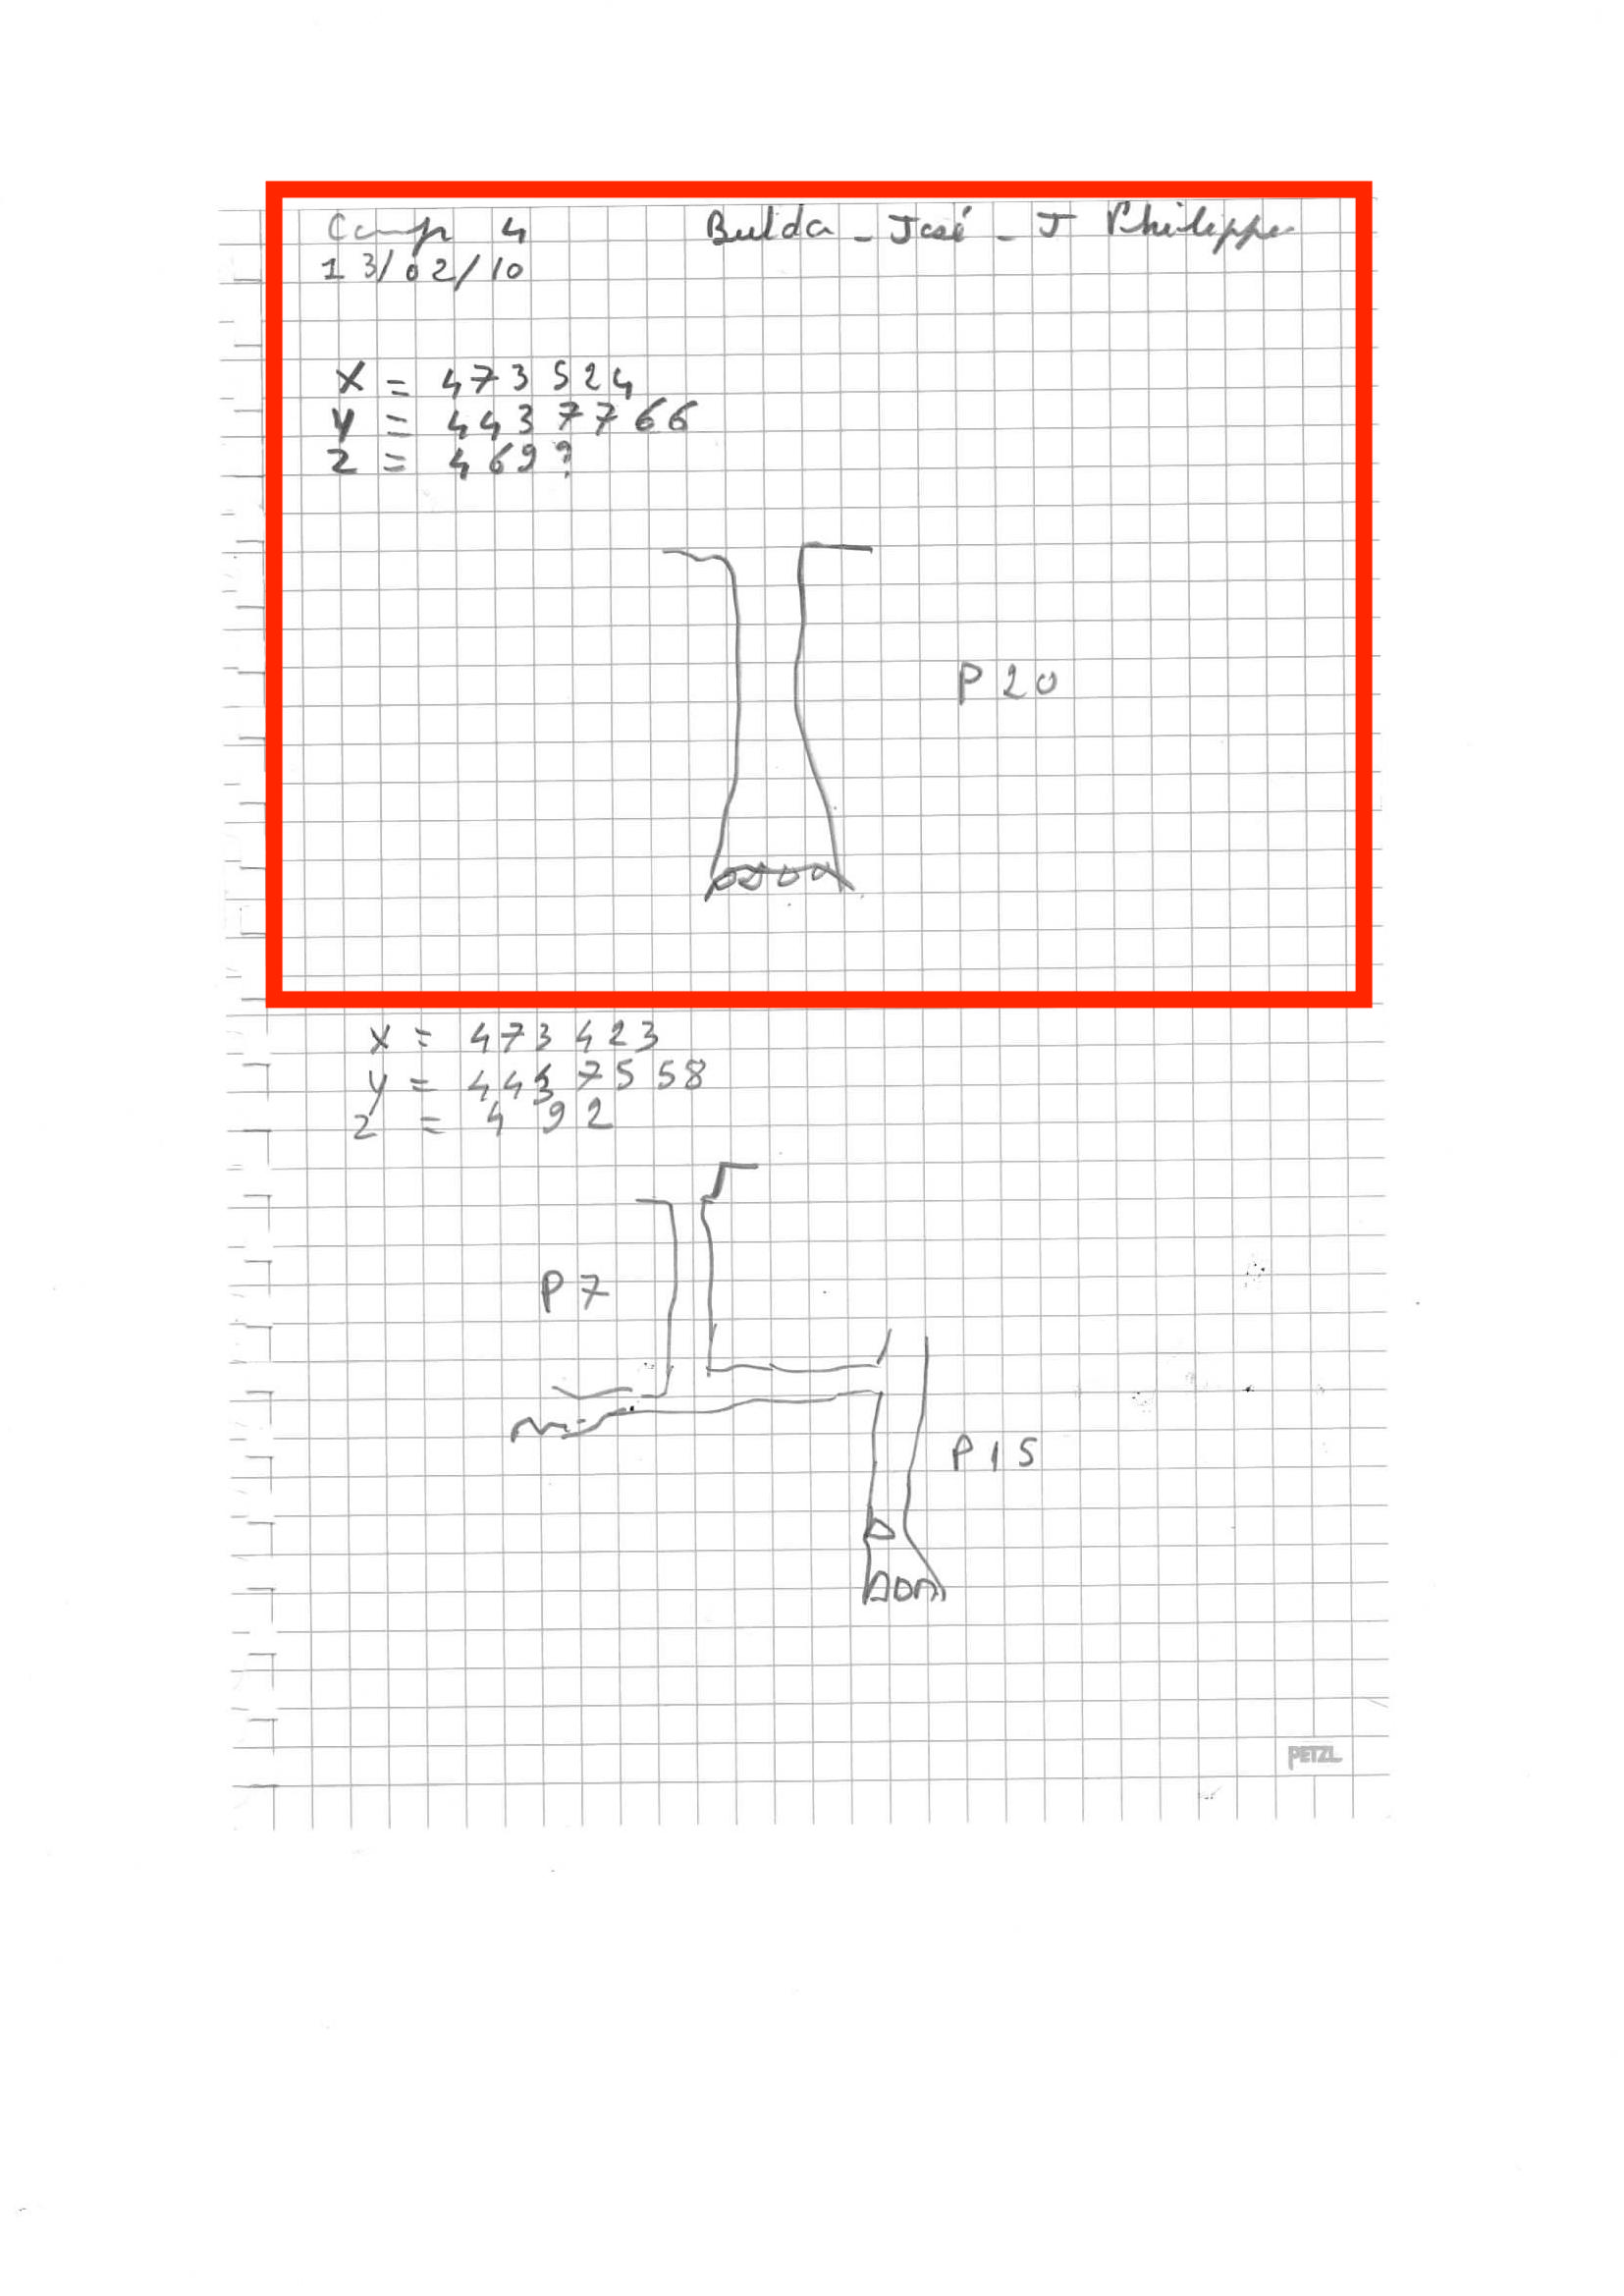 Camp 4 Bulda - José - J Philippe
13/02/10
X = 473 524
Y = 443 77 66
Z = 469?
P 20
X = 473 423
Y = 443 75 58
Z = 492
P 7
P 15
PETZL